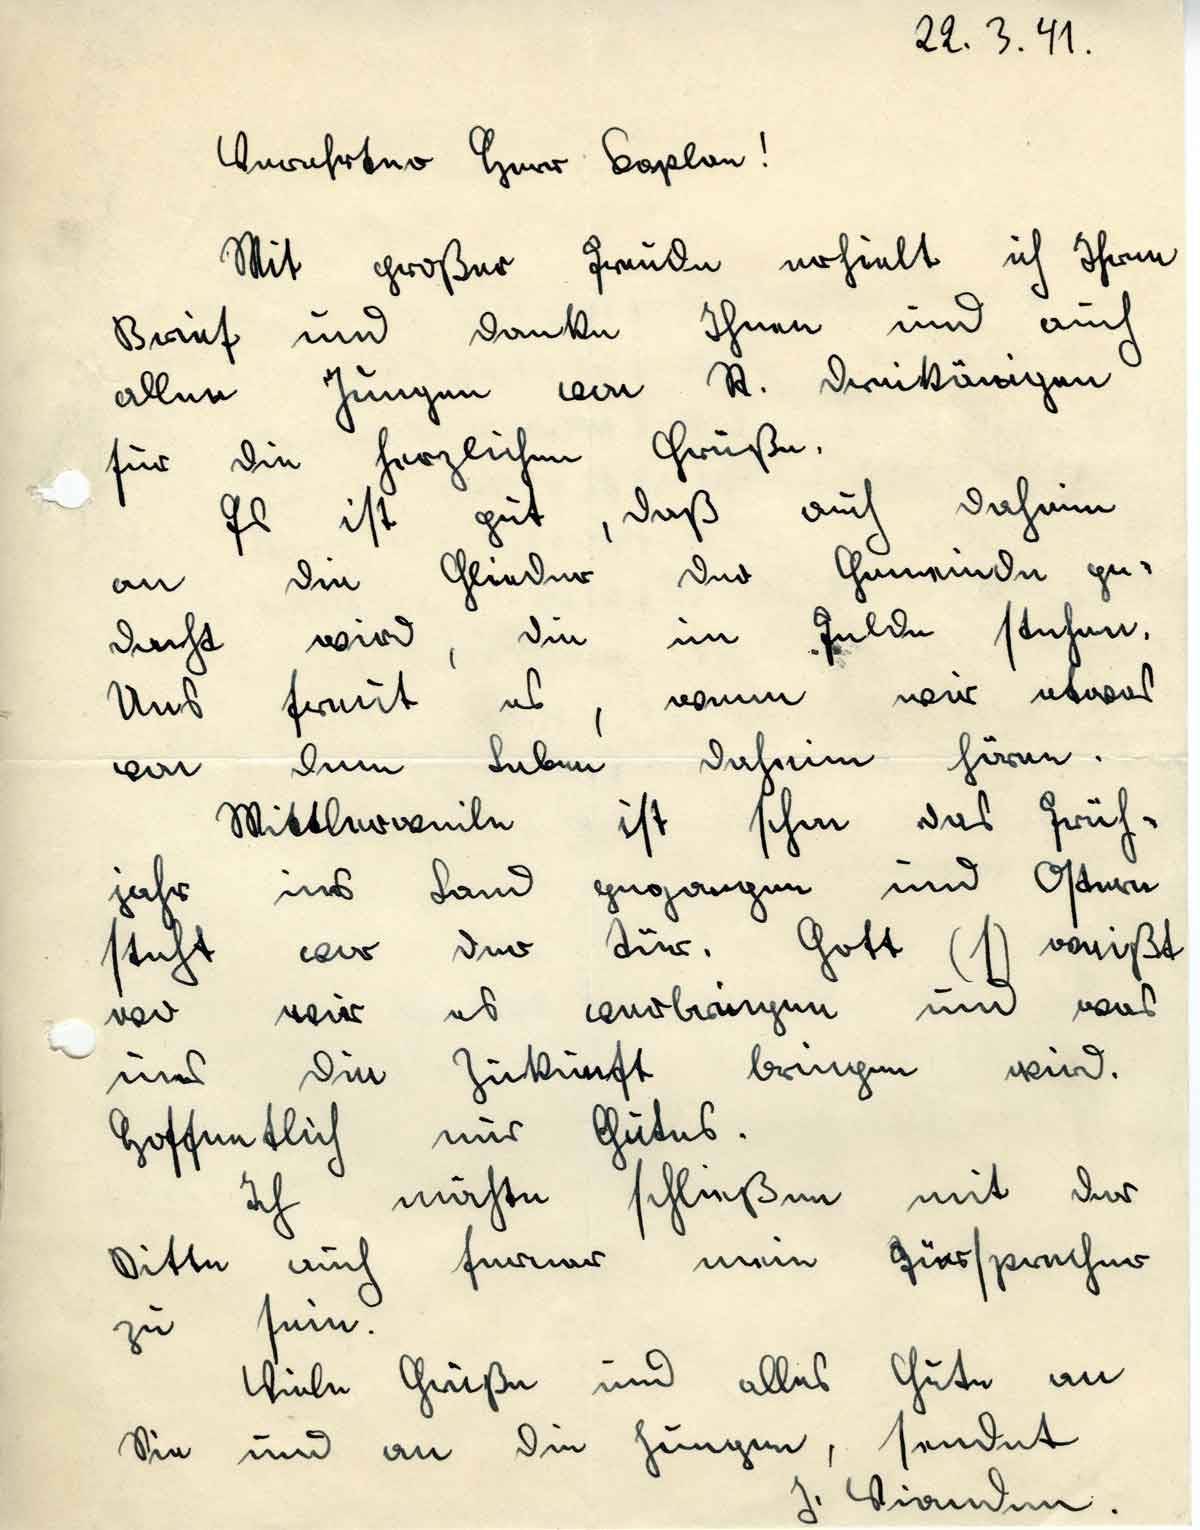 22. 3. 41.
Verehrter Herr Kaplan!
Mit großer Freude erhielt ich Ihren
Brief und danke Ihnen und auch
allen Jungen von St. Dreikönigen
für die herzlichen Grüße.
Es ist gut, daß auch daheim
an die Glieder der Gemeinde ge-
dacht wird, die im Felde stehen.
Uns freut es, wenn wir etwas
von dem Leben daheim hören.
Mittlerweile ist schon das Früh-
jahr ins Land gegangen und Ostern
steht vor der Tür. Gott (s) weißt
wo wir es verbringen und was
uns die Zukunft bringen wird.
Hoffentlich nur Gutes.
Ich möchte schließen mit der
Bitte auch ferner mein Fürsprecher
zu sein.
Viele Grüße und alles Gute an
Sie und an die Jungen, sendet
J. Vianden.